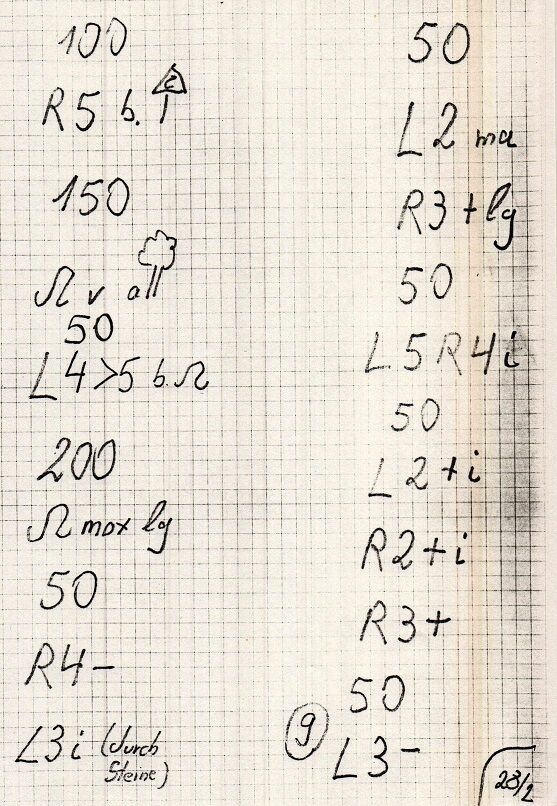 100
R5 b.
150
Ω v all
50
L4>5 b. Ω
200
Ω max lg
50
R4-
L3i (durch
Steine)
50
L2 ma
R3+lg
50
L5R4i
50
L2+i
R2+i
R3+
50
9
L3-
28/2